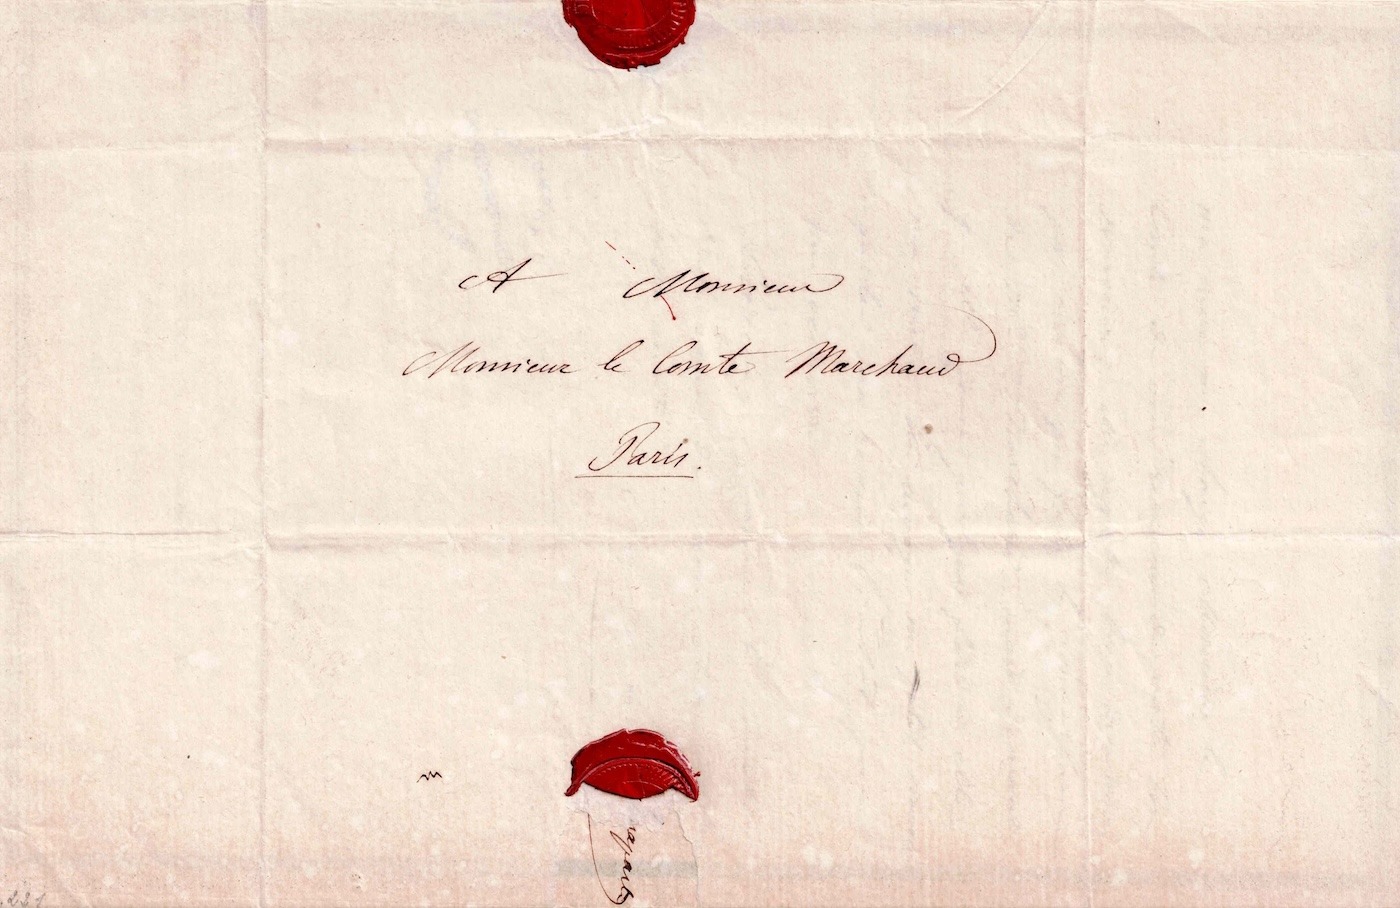 A Monsieur
Monsieur le Comte Marchand
Paris.
231